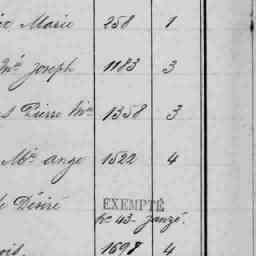 Marie 258 1
Mie Joseph 1183 3
Pierre Mie 1358 3
Mie ange 1522 4
le Désiré EXEMPTÉ
No 43 - Janzé.
1698 4